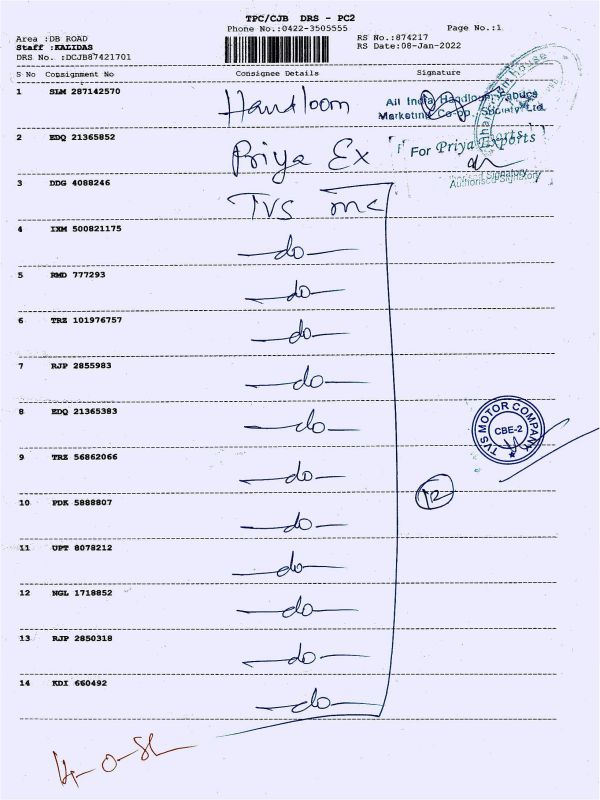 TPC/CJB DRS - PC2
Phone No.:0422-3505555
Page No.:1
Area :DB ROAD
RS No.:874217
Staff :KALIDAS
RS Date:08-Jan-2022
DRS No. :DCJB87421701
S No Consignment No Consignee Details Signature
1 SLM 287142570 Handloom
All India Handloom Fabrics
Marketing Co-op. Society Ltd.
2 EDQ 21365852 Priya Ex
For Priya Exports
Authorised Signatory
3 DDG 4088246 TVS mc
4 IXM 500821175 do
5 RMD 777293 do
6 TRZ 101976757 do
7 RJP 2855983 do
8 EDQ 21365383 do
TVS MOTOR COMPANY
CBE-2
9 TRZ 56862066 do
10 PDK 5888807 do
12
11 UPT 8078212 do
12 NGL 1718852 do
13 RJP 2850318 do
14 KDI 660492 do